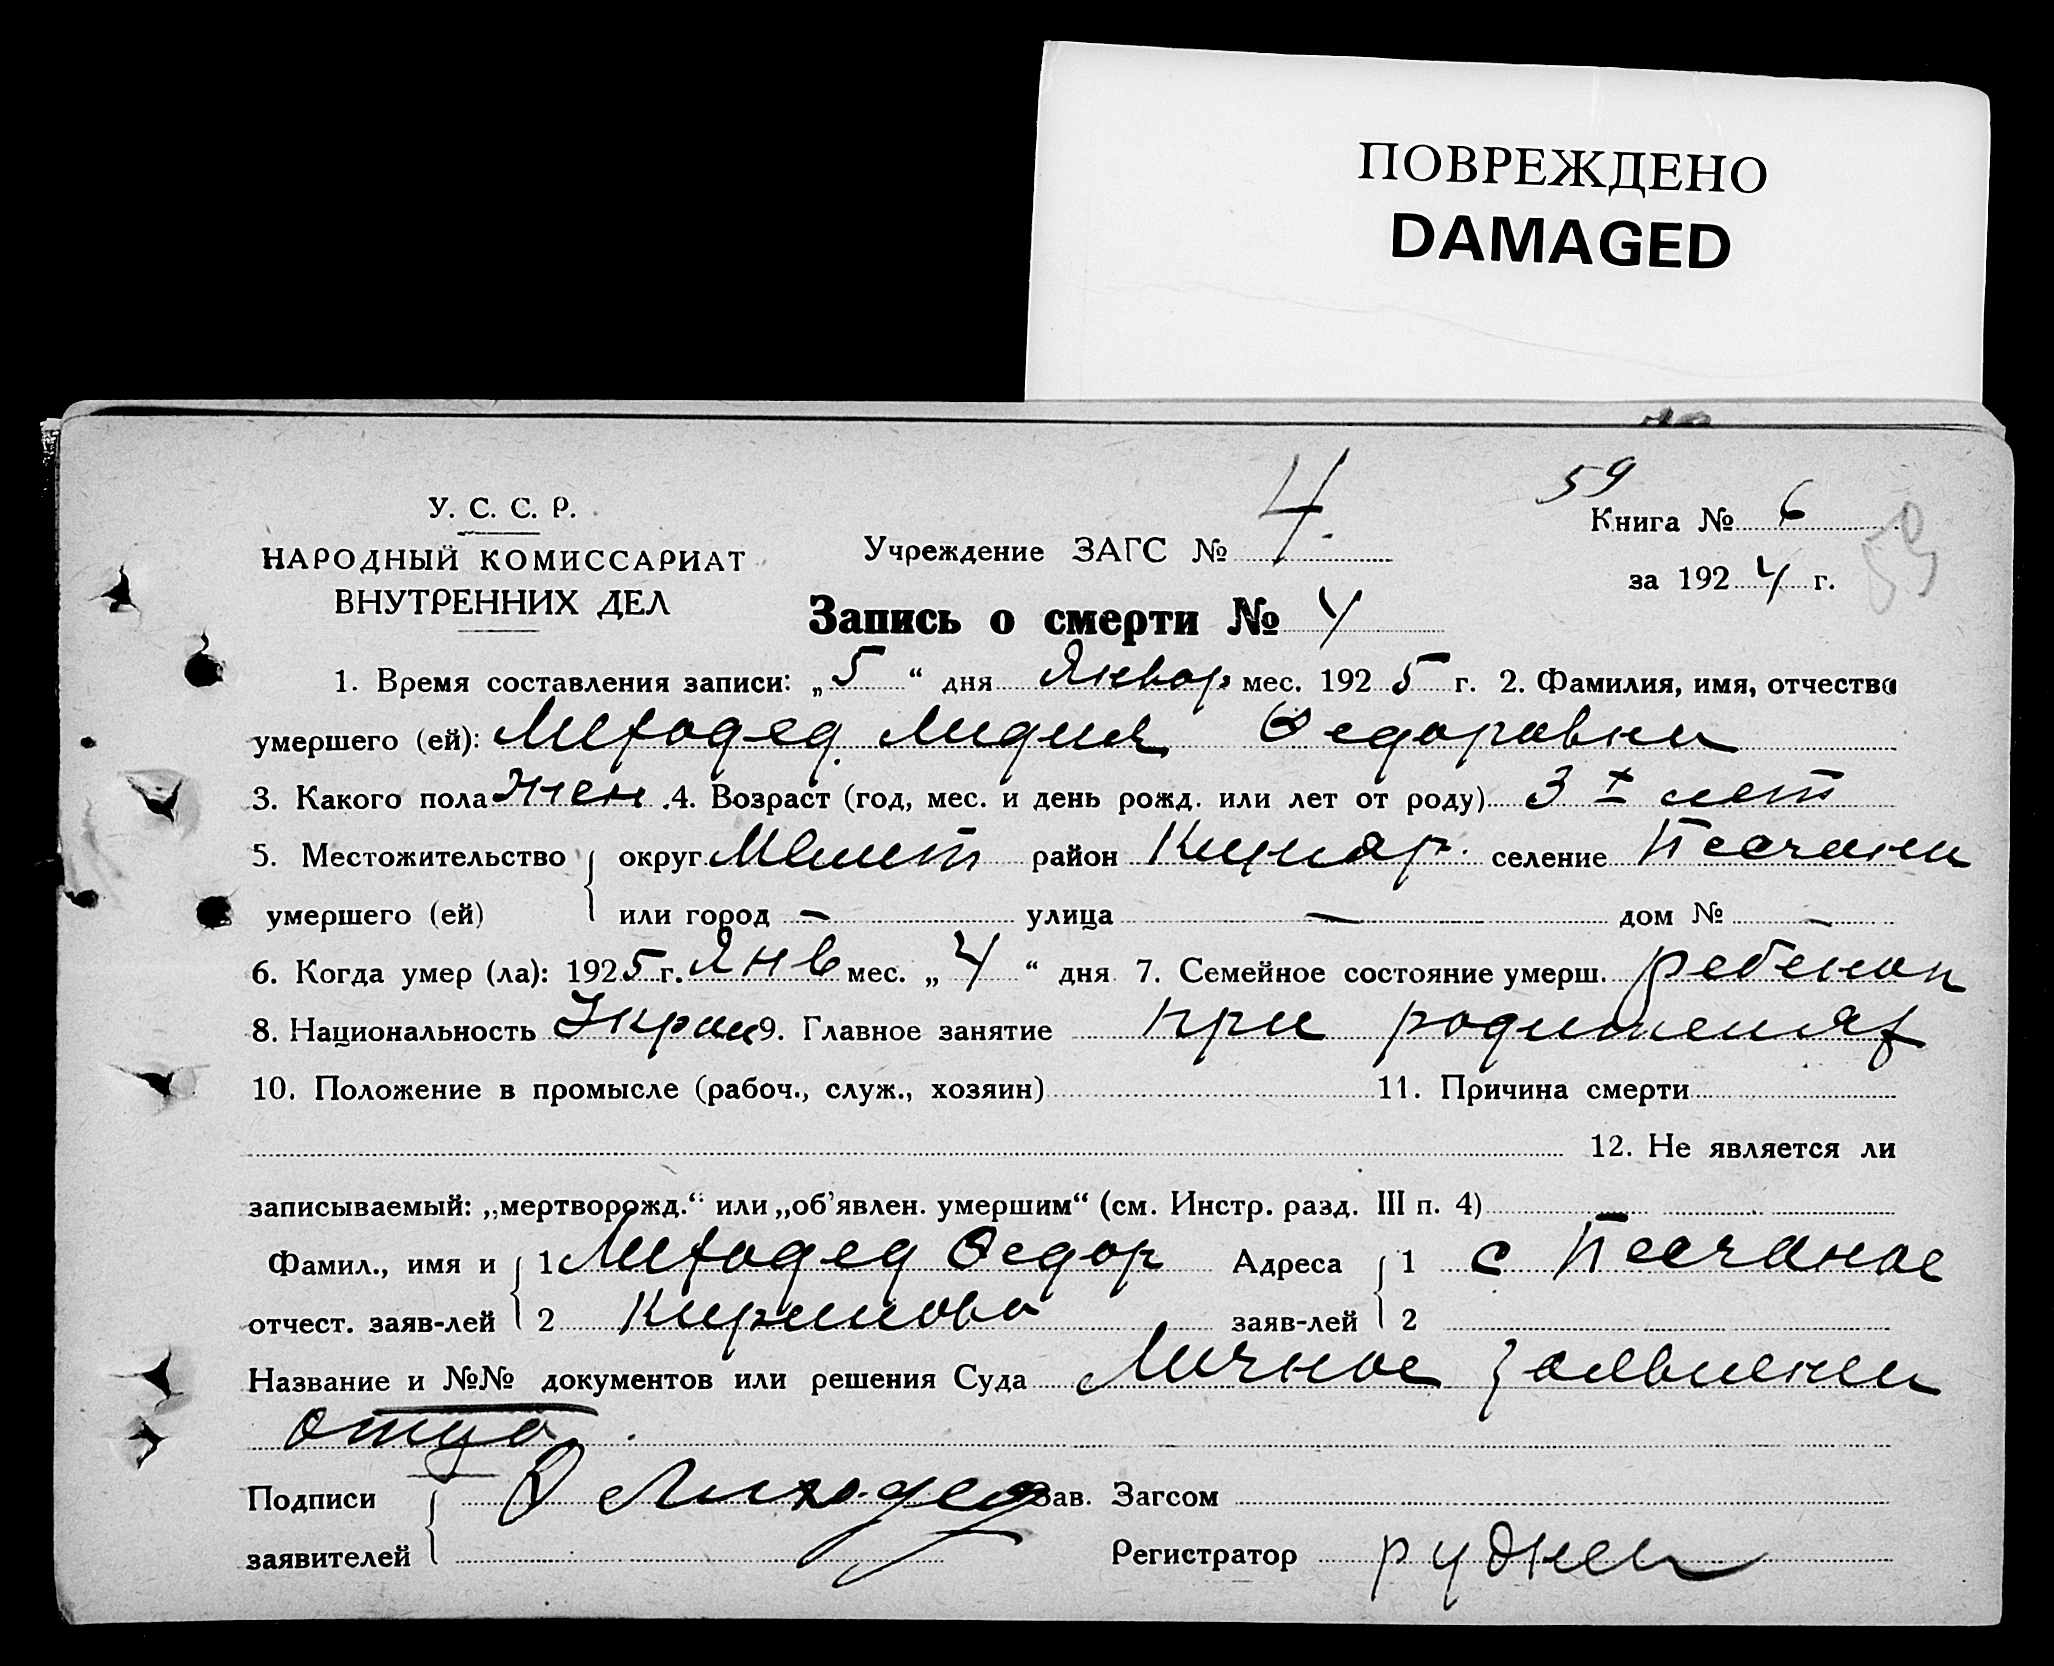 ПОВРЕЖДЕНО
DAMAGED
У. С. С. Р.
НАРОДНЫЙ КОМИССАРИАТ
ВНУТРЕННИХ ДЕЛ
Учреждение ЗАГС № 4.
59
Книга № 6
59
за 1924 г.
Запись о смерти № 4
1. Время составления записи: „5“ дня Январ. мес. 1925 г. 2. Фамилия, имя, отчество
умершего (ей): Лиходед Лидия Федоровни
3. Какого пола жен .4. Возраст (год, мес. и день рожд. или лет от роду) 3 ± лет
5. Местожительство округ район селение Песчани
умершего (ей) или город — улица — дом № —
6. Когда умер (ла): 1925 г. Янв мес. „4“ дня 7. Семейное состояние умерш. ребенок
8. Национальность Украи 9. Главное занятие при родителях
10. Положение в промысле (рабоч., служ., хозяин) 11. Причина смерти
12. Не является ли
записываемый: „мертворожд.“ или „об'явлен. умершим“ (см. Инстр. разд. III п. 4)
Фамил., имя и 1 Лиходед Федор Адреса 1 с Песчаное
отчест. заяв-лей 2 Кирилово заяв-лей 2
Название и №№ документов или решения Суда Личное заявлении
отца
Подписи Лиходед Зав. Загсом
заявителей Регистратор